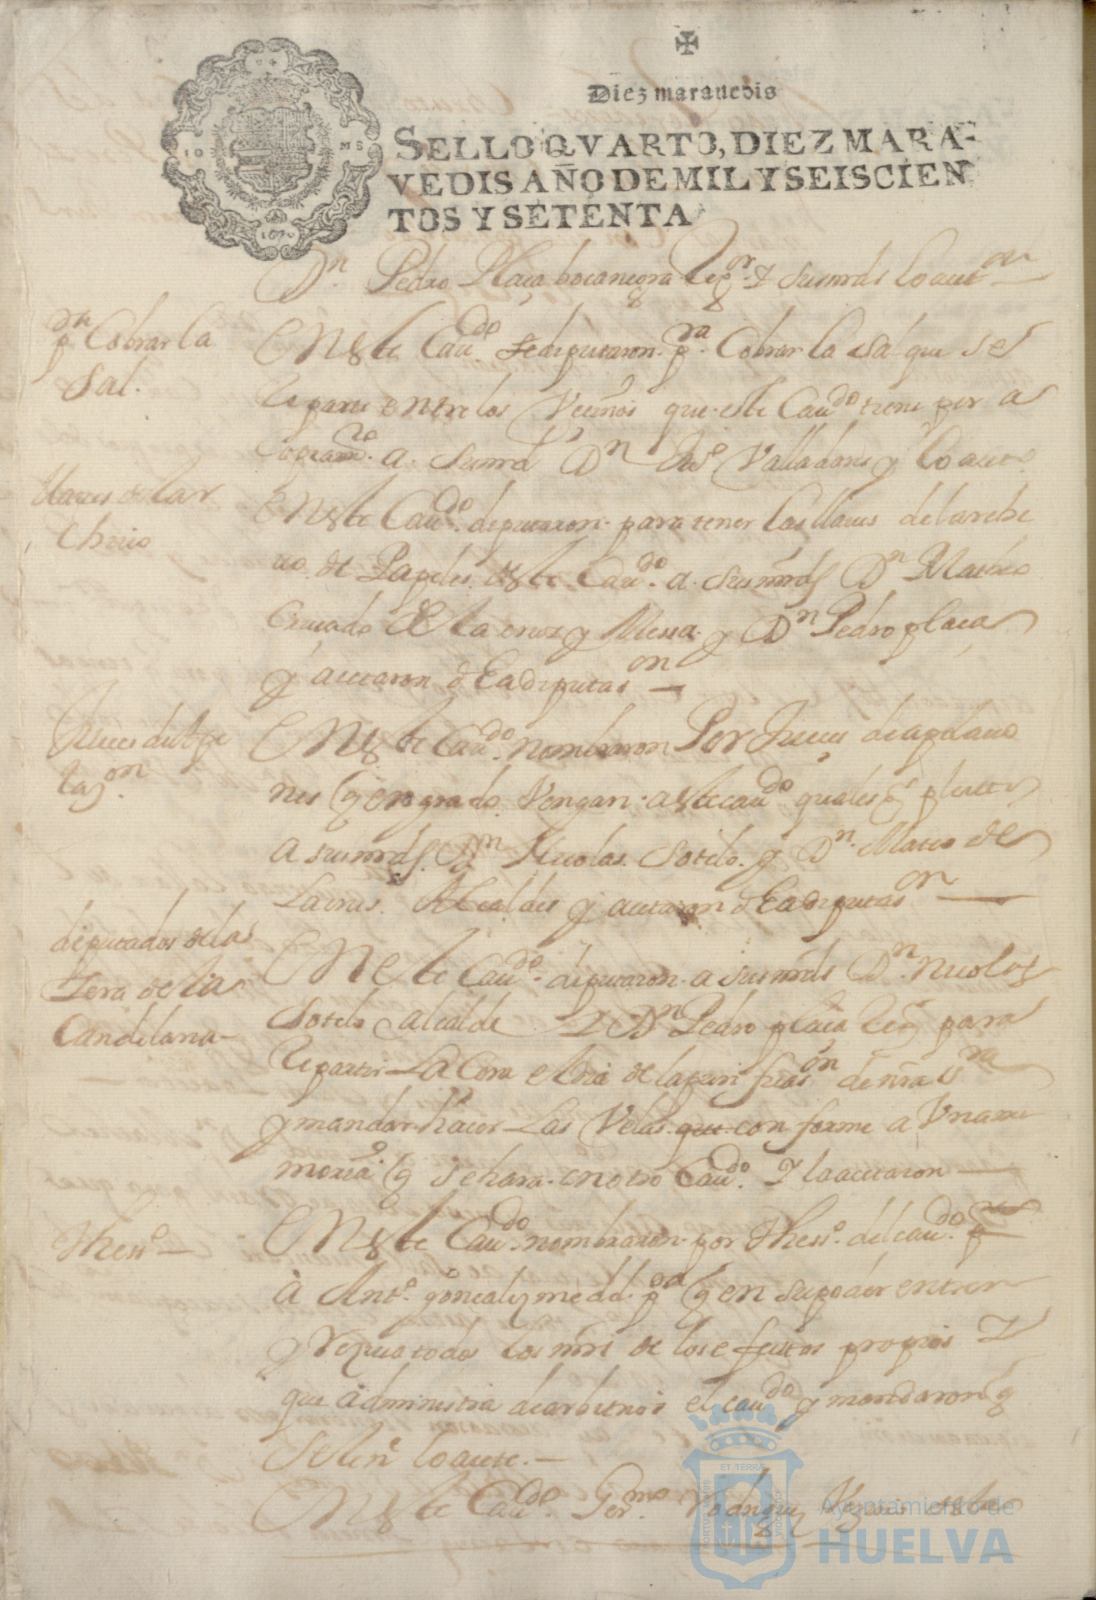 Diez maravedis
SELLO QVARTO, DIEZ MARA-
VEDIS AÑO DE MIL Y SEISCIEN
TOS Y SETENTA
1670
Dn Pedro Plaça bocanegra Regor Y sus mrds lo acettaron
pa Cobrar la
Sal.
En este Caudo se diputaron pa Cobrar la sal que se
Reparte entre los Vecinos que este Caudo tiene por a
a su md Dn Juo Valladares y lo acetto
llaves del ar
chivo
En este Caudo diputaron para tener las llaves del archi
uo de Papeles deste Caudo a sus mrds Dn Matheo
Cruzado de la cruz y Messa y Dn Pedro plaça
y acetaron dha diputason
Jueces de Ape
lazon
En este Caudo nombraron Por Jueces de apelacio
nes q en grado Vengan a este caudo qualesqr pleitos
a sus mrds Dn Nicolas Sotelo y Dn Mateo de
Alcaldes y acetaron dha diputason
diputados de la
Sera de la
Candelaria
En este Caudo diputaron a sus mrds Dn Nicolas
Sotelo alcalde Y Dn Pedro plaça Regr para
Repartir La Cera el dia de la purificason de nra sra
y mandar hacer Las Velas que conforme a Vna me
moria q se hara en otro Caudo Y la acetaron
Thesso
En este Caudo nombraron por Thesso del caudo
a Anto gonçalez pa q en su poder entren
y Reziua todos los mrs de los efectos propios Y
que administra de arbitrios el caudo y mandaron q
se le no lo acete.
En este Caudo Germo Rodriguez
ET TERRÆ
Ayuntamiento de
HUELVA